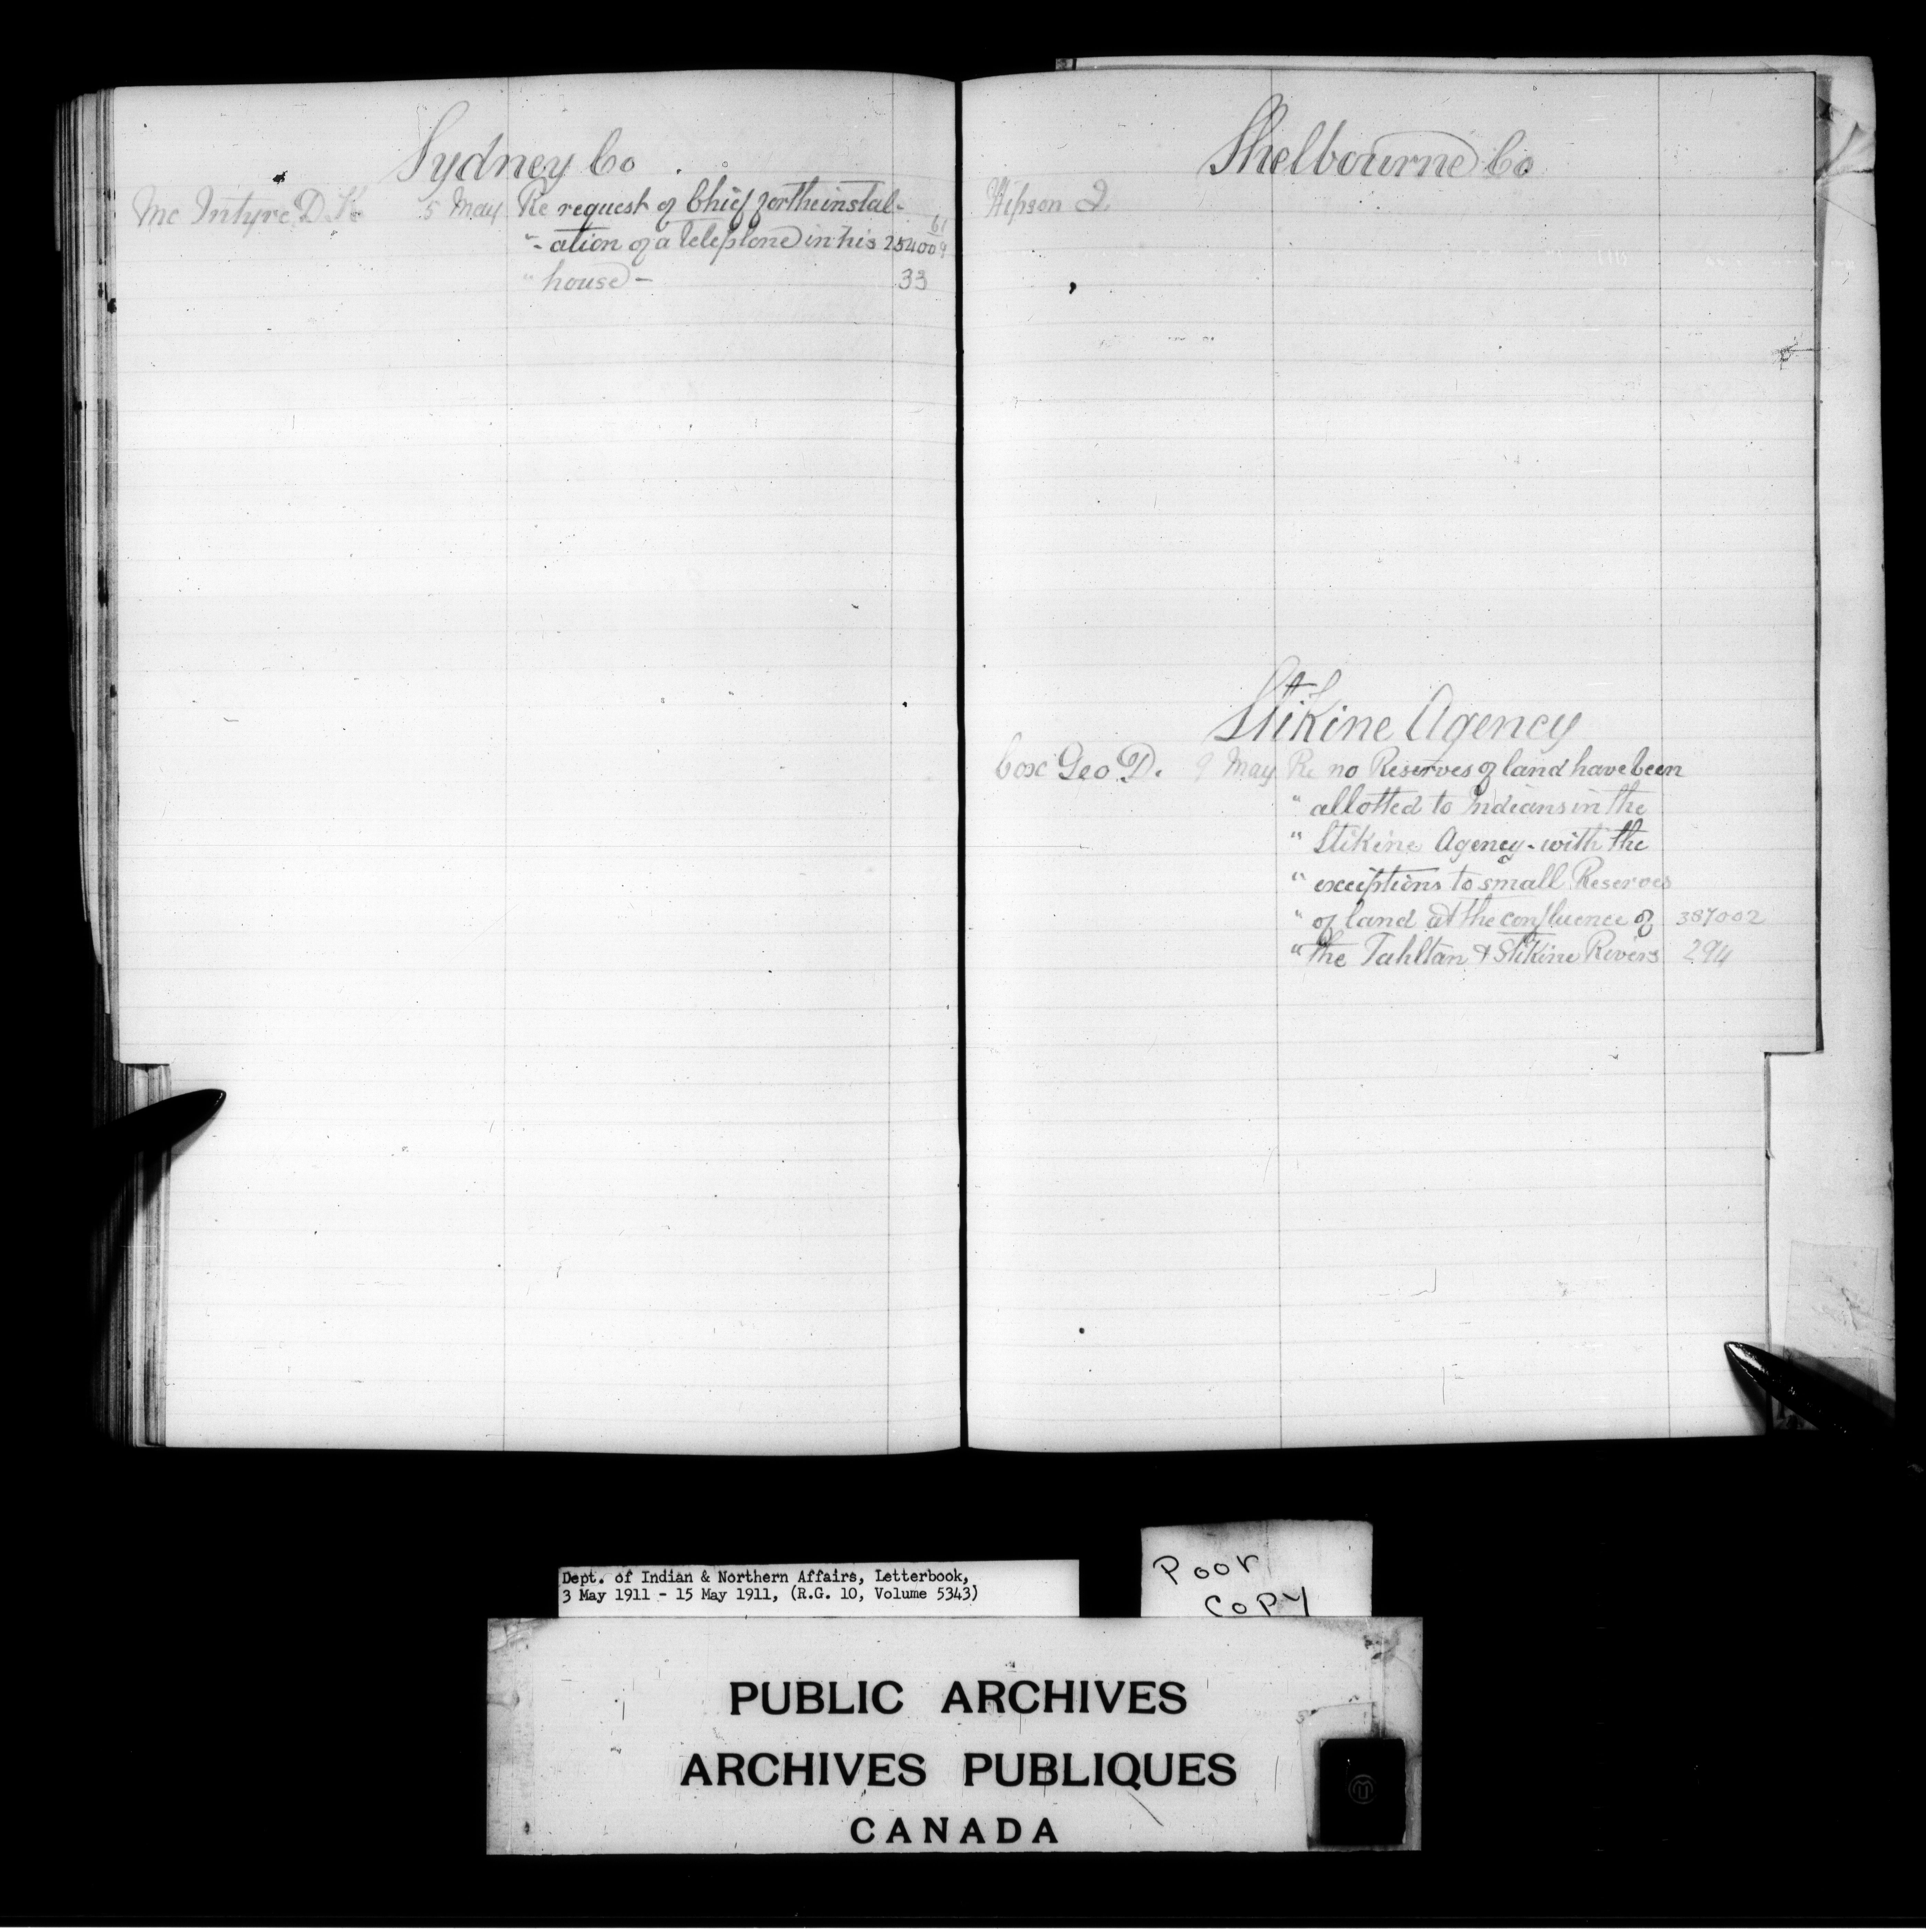 Sydney Co
Mc Intyre D. K. 5 May Re request of Chief for the instal-
"- ation of a telephone in his 254009
" house - 33
Shelbourne Co
Hipson J.
Stikine Agency
Cox Geo D. 9 May Re no Reserves of land have been
" allotted to Indians in the
" Stikine Agency - with the
" exceptions to small Reserves
" of land at the confluence of 387002
" the Tahltan & Stikine Rivers 294
Dept. of Indian & Northern Affairs, Letterbook,
3 May 1911 - 15 May 1911, (R.G. 10, Volume 5343)
Poor
Copy
PUBLIC ARCHIVES
ARCHIVES PUBLIQUES
CANADA